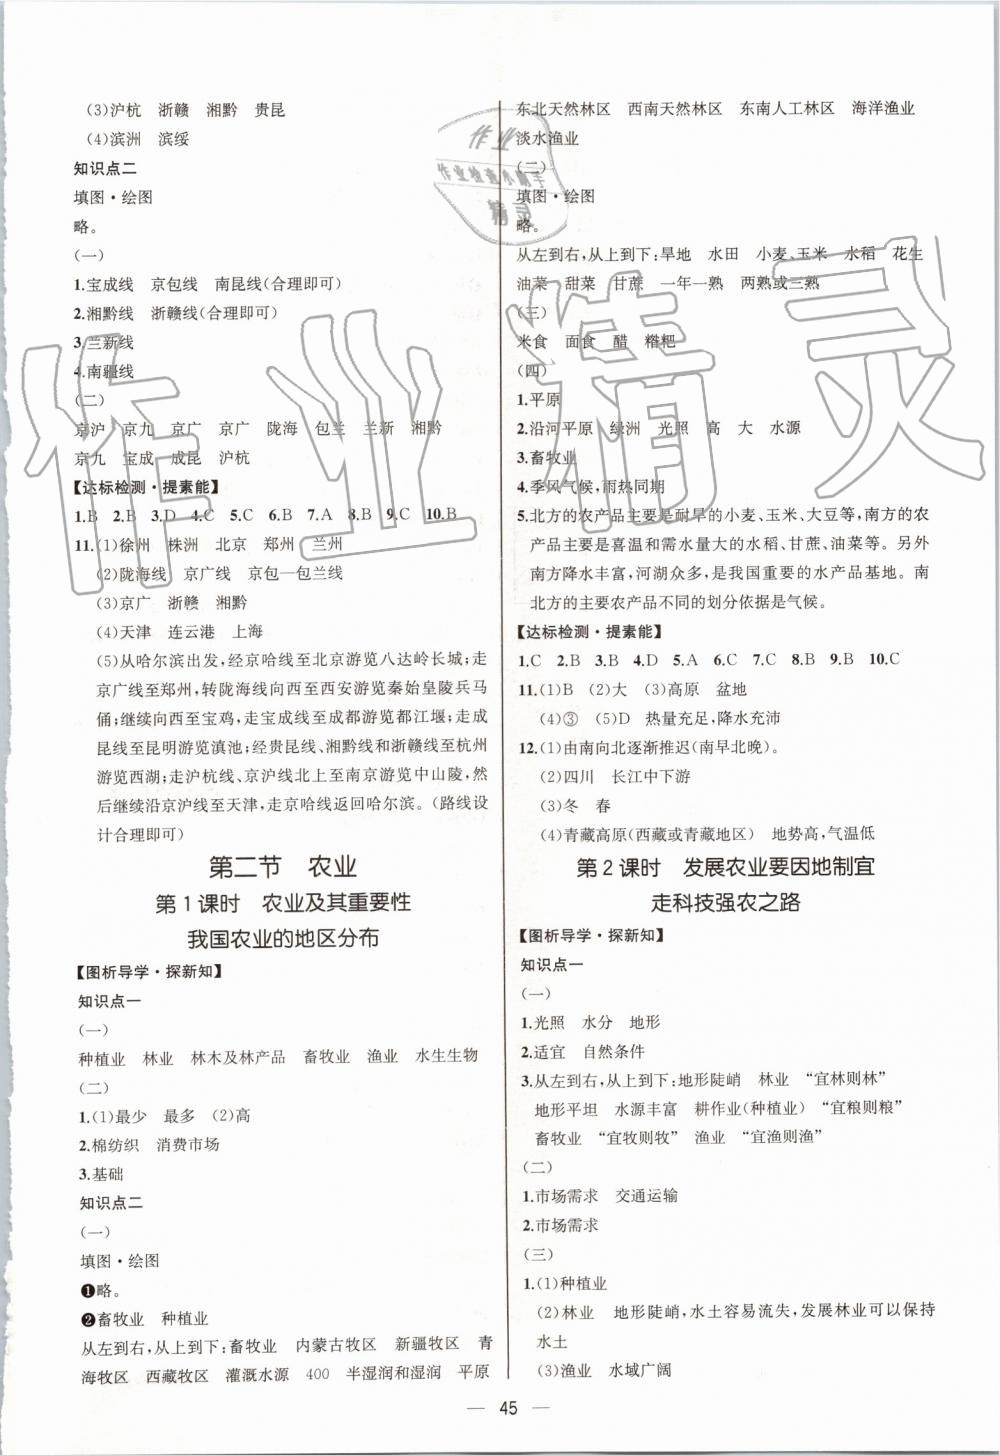 (3)沪杭　浙赣　湘黔　贵昆
(4)滨洲　滨绥
知识点二
填图·绘图
略。
(一)
1.宝成线　京包线　南昆线(合理即可)
2.湘黔线　浙赣线(合理即可)
3.兰新线
4.南疆线
(二)
京沪　京九　京广　京广　陇海　包兰　兰新　湘黔
京九　宝成　成昆　沪杭
【达标检测·提素能】
1.B　2.B　3.D　4.C　5.C　6.B　7.A　8.B　9.C　10.B
11.(1)徐州　株洲　北京　郑州　兰州
(2)陇海线　京广线　京包—包兰线
(3)京广　浙赣　湘黔
(4)天津　连云港　上海
(5)从哈尔滨出发,经京哈线至北京游览八达岭长城;走
京广线至郑州,转陇海线向西至西安游览秦始皇陵兵马
俑;继续向西至宝鸡,走宝成线至成都游览都江堰;走成
昆线至昆明游览滇池;经贵昆线、湘黔线和浙赣线至杭州
游览西湖;走沪杭线、京沪线北上至南京游览中山陵,然
后继续沿京沪线至天津,走京哈线返回哈尔滨。(路线设
计合理即可)
第二节　农业
第1课时　农业及其重要性
我国农业的地区分布
【图析导学·探新知】
知识点一
(一)
种植业　林业　林木及林产品　畜牧业　渔业　水生生物
(二)
1.(1)最少　最多　(2)高
2.棉纺织　消费市场
3.基础
知识点二
(一)
填图·绘图
❶略。
❷畜牧业　种植业
从左到右,从上到下:畜牧业　内蒙古牧区　新疆牧区　青
海牧区　西藏牧区　灌溉水源　400　半湿润和湿润　平原
东北天然林区　西南天然林区　东南人工林区　海洋渔业
淡水渔业
(二)
填图·绘图
略。
从左到右,从上到下:旱地　水田　小麦、玉米　水稻　花生
油菜　甜菜　甘蔗　一年一熟　两熟或三熟
(三)
米食　面食　醋　糌粑
(四)
1.平原
2.沿河平原　绿洲　光照　高　大　水源
3.畜牧业
4.季风气候,雨热同期
5.北方的农产品主要是耐旱的小麦、玉米、大豆等,南方的农
产品主要是喜温和需水量大的水稻、甘蔗、油菜等。另外
南方降水丰富,河湖众多,是我国重要的水产品基地。南
北方的主要农产品不同的划分依据是气候。
【达标检测·提素能】
1.C　2.B　3.B　4.D　5.A　6.C　7.C　8.B　9.B　10.C
11.(1)B　(2)大　(3)高原　盆地
(4)③　(5)D　热量充足,降水充沛
12.(1)由南向北逐渐推迟(南早北晚)。
(2)四川　长江中下游
(3)冬　春
(4)青藏高原(西藏或青藏地区)　地势高,气温低
第2课时　发展农业要因地制宜
走科技强农之路
【图析导学·探新知】
知识点一
(一)
1.光照　水分　地形
2.适宜　自然条件
3.从左到右,从上到下:地形陡峭　林业　“宜林则林”
地形平坦　水源丰富　耕作业(种植业)　“宜粮则粮”
畜牧业　“宜牧则牧”　渔业　“宜渔则渔”
(二)
1.市场需求　交通运输
2.市场需求
(三)
1.(1)种植业
(2)林业　地形陡峭,水土容易流失,发展林业可以保持
水土
(3)渔业　水域广阔
— 45 —
作业
作业检查小助手
精灵
作业精灵